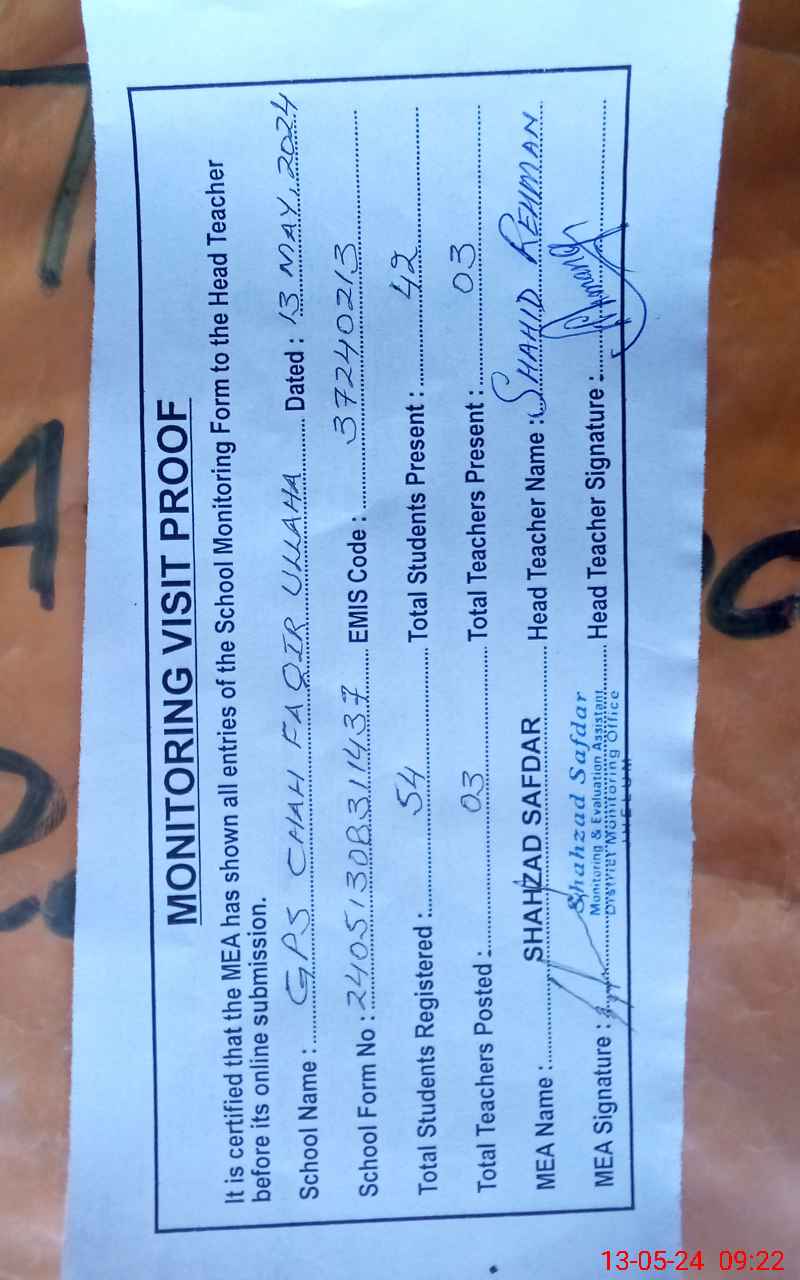 MONITORING VISIT PROOF
It is certified that the MEA has shown all entries of the School Monitoring Form to the Head Teacher
before its online submission.
School Name : GPS CHAH FAQIR ULLAHA Dated : 13 MAY, 2024
School Form No : 24051308311437 EMIS Code : 37240213
Total Students Registered : 54 Total Students Present : 42
Total Teachers Posted : 03 Total Teachers Present : 03
MEA Name : SHAHZAD SAFDAR Head Teacher Name : SHAHID REHMAN
MEA Signature : Head Teacher Signature :
Shahzad Safdar
Monitoring & Evaluation Assistant
District Monitoring Office
JHELUM
13-05-24 09:22